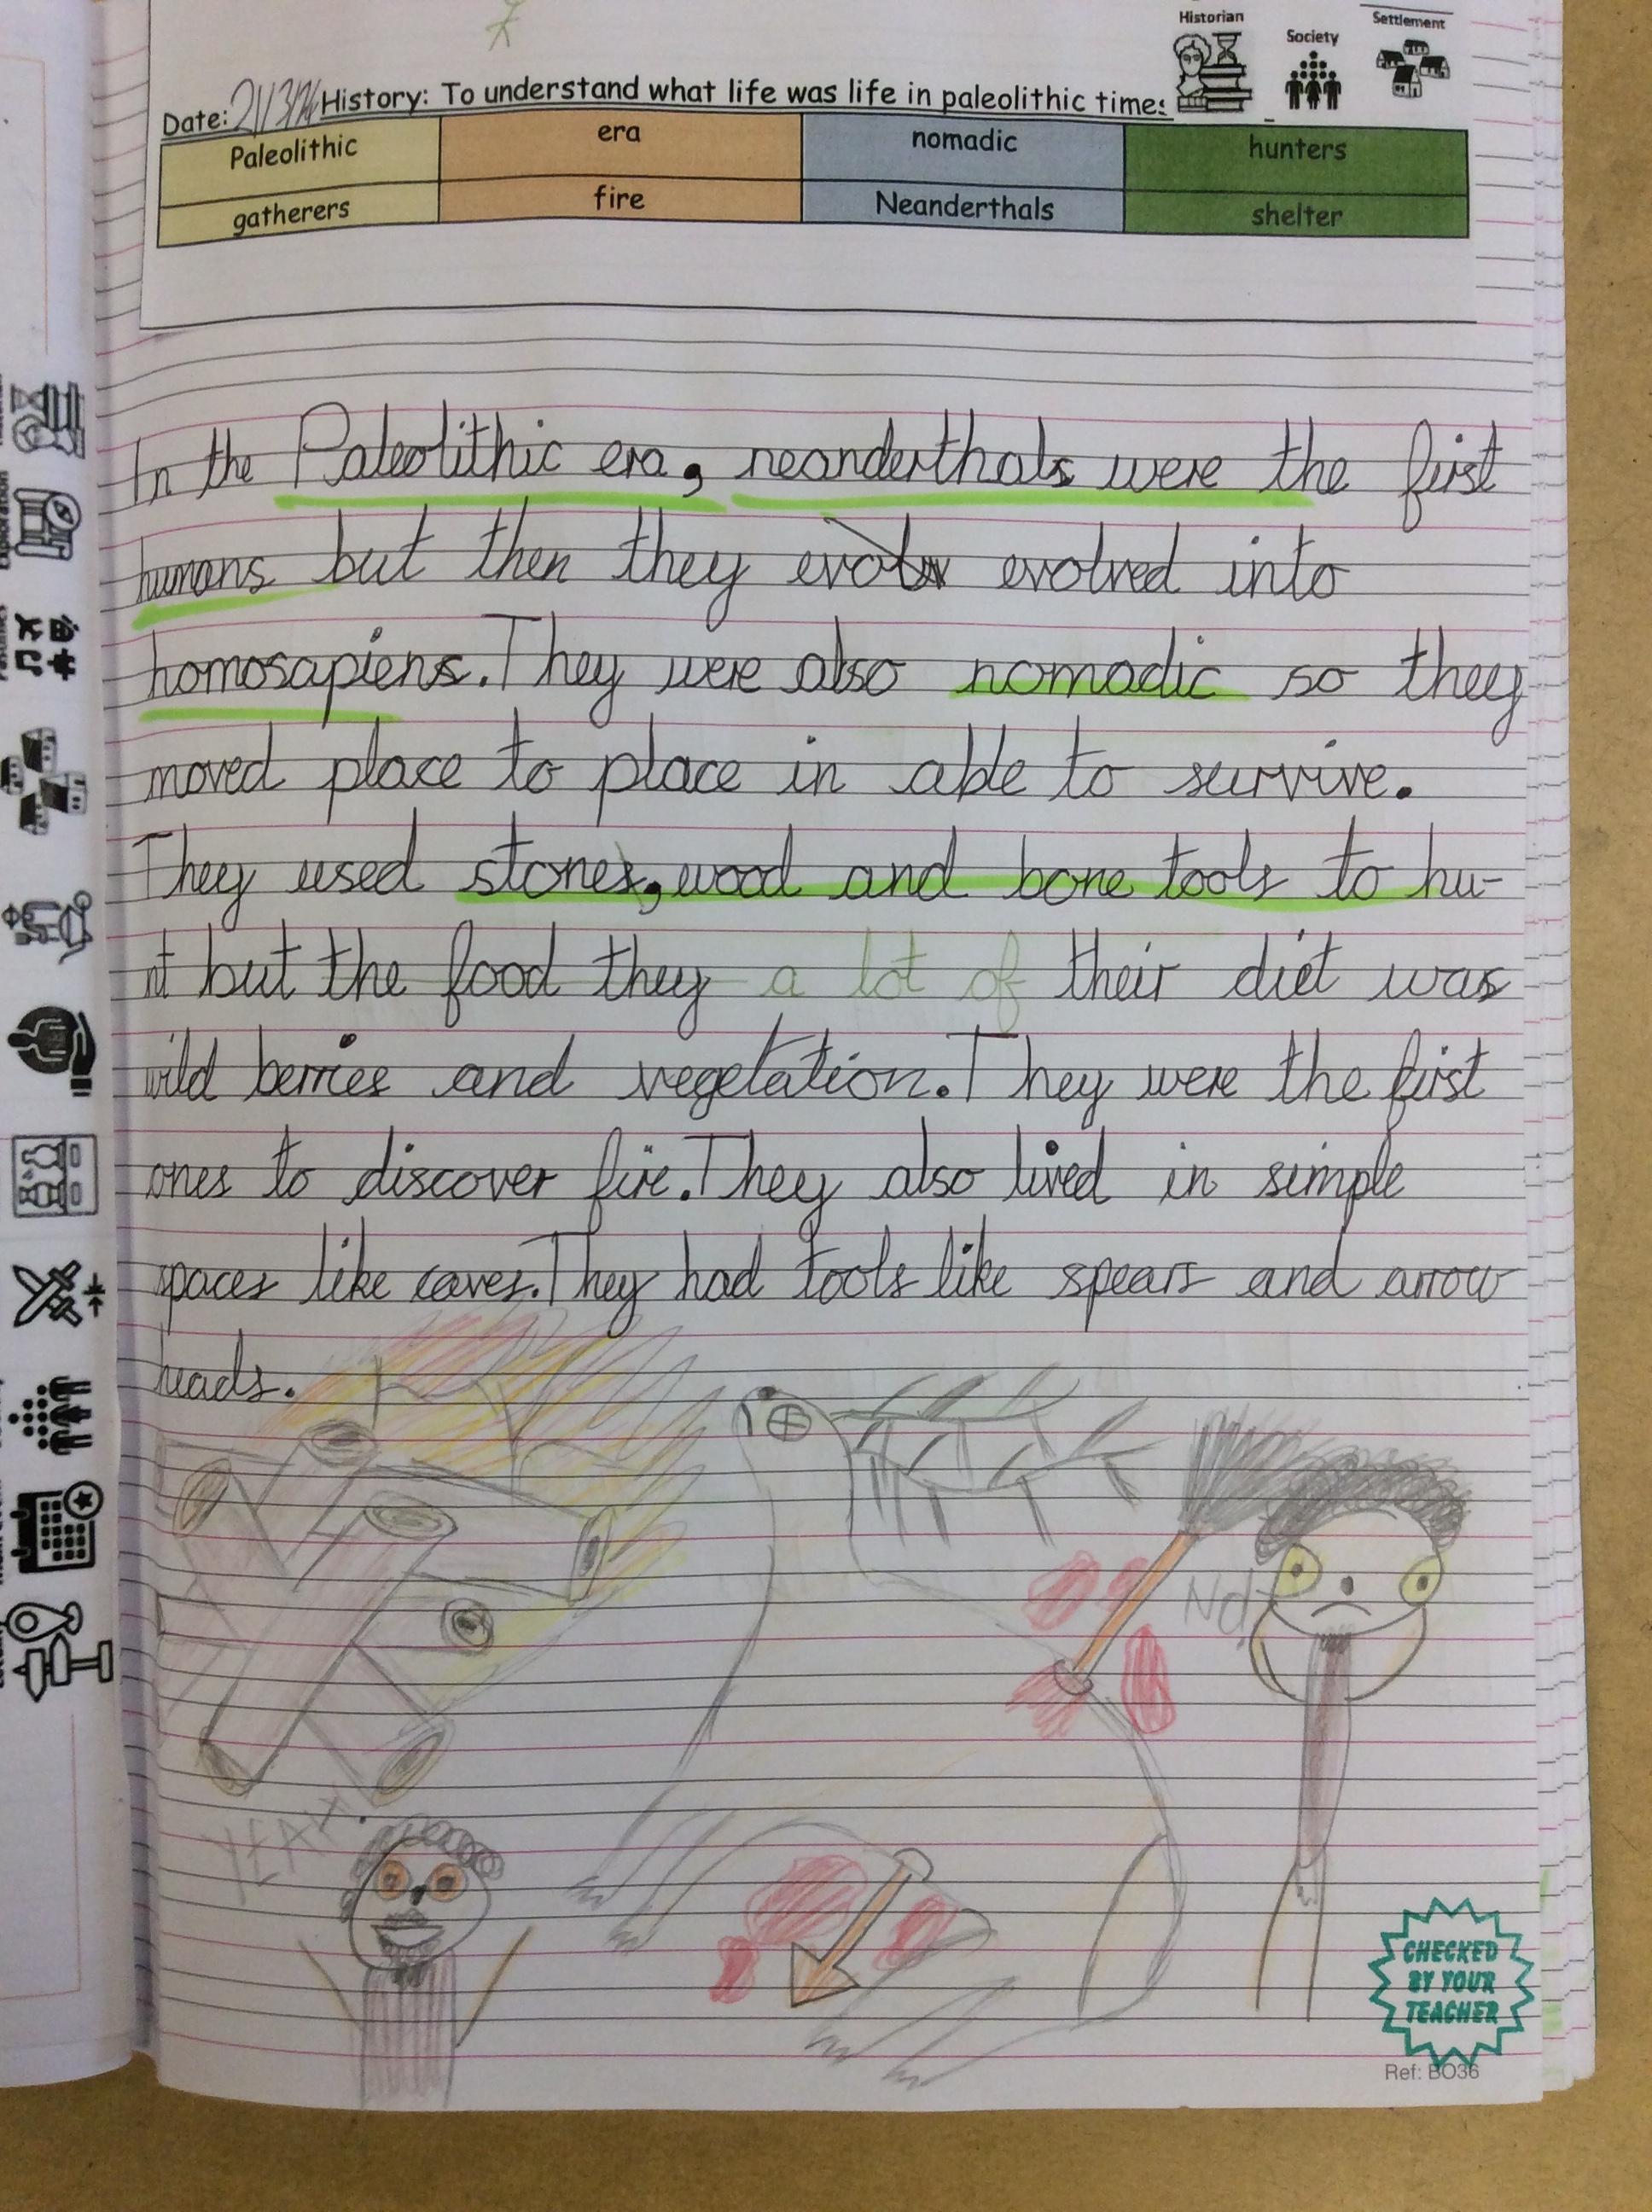 Historian
Society
Settlement
Date: 21/3/24 History: To understand what life was life in paleolithic times
Paleolithic era nomadic hunters
gatherers fire Neanderthals shelter
In the Paleolithic era, neanderthals were the first
humans but then they evolved into
homosapiens. They were also nomadic so they
moved place to place in able to survive.
They used stones, wood and bone tools to hu-
nt but the food they a lot of their diet was
wild berries and vegetation. They were the first
ones to discover fire. They also lived in simple
spaces like caves. They had tools like spears and arrow
heads.
No!
YEAH.
CHECKED
BY YOUR
TEACHER
Ref: BO36